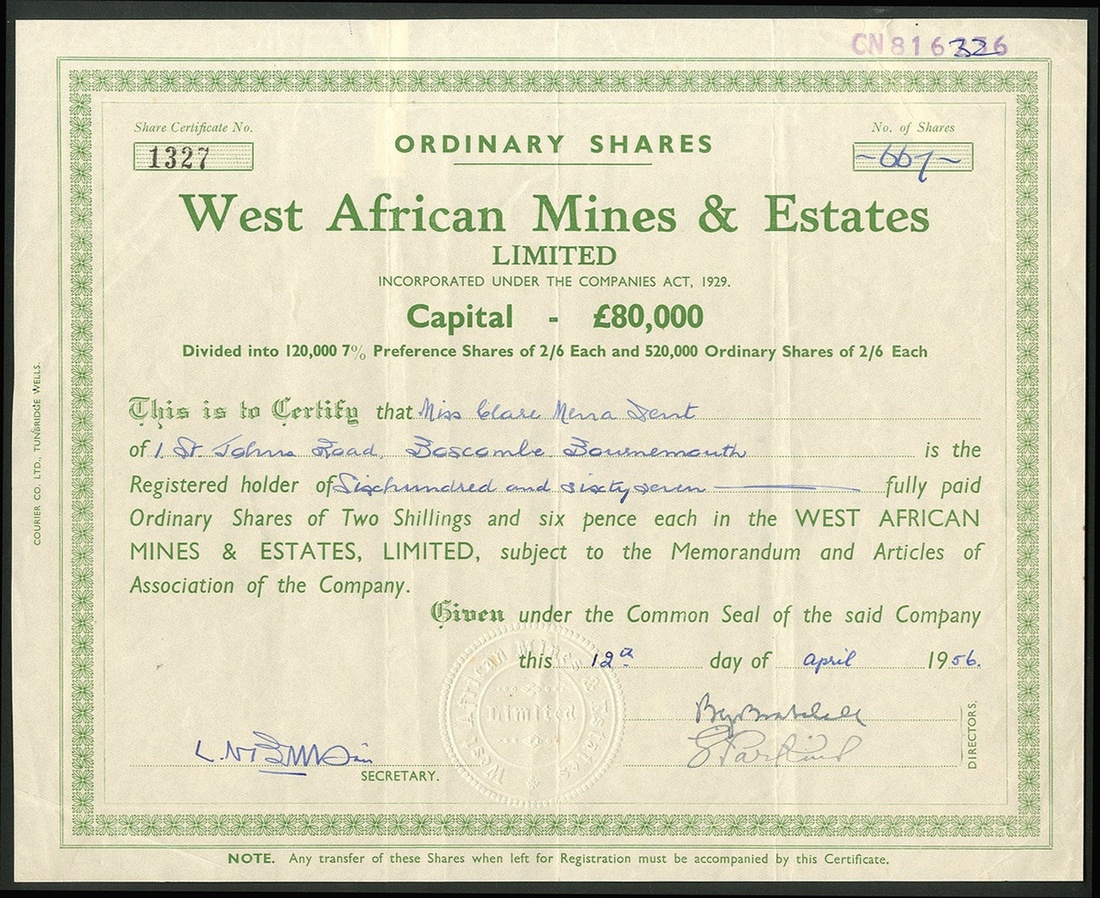 CN816326
Share Certificate No.
1327
ORDINARY SHARES
No. of Shares
-667-
West African Mines & Estates
LIMITED
INCORPORATED UNDER THE COMPANIES ACT, 1929.
Capital - £80,000
Divided into 120,000 7% Preference Shares of 2/6 Each and 520,000 Ordinary Shares of 2/6 Each
This is to Certify that Miss Clare
of 1 St. Johns Road, Boscombe Bournemouth is the
Registered holder of Sixhundred and sixtyseven fully paid
Ordinary Shares of Two Shillings and six pence each in the WEST AFRICAN
MINES & ESTATES, LIMITED, subject to the Memorandum and Articles of
Association of the Company.
Given under the Common Seal of the said Company
this 12th day of april 1956.
West African Mines & Estates
Limited
SECRETARY.
DIRECTORS.
NOTE. Any transfer of these Shares when left for Registration must be accompanied by this Certificate.
COURIER CO. LTD., TUNBRIDGE WELLS.